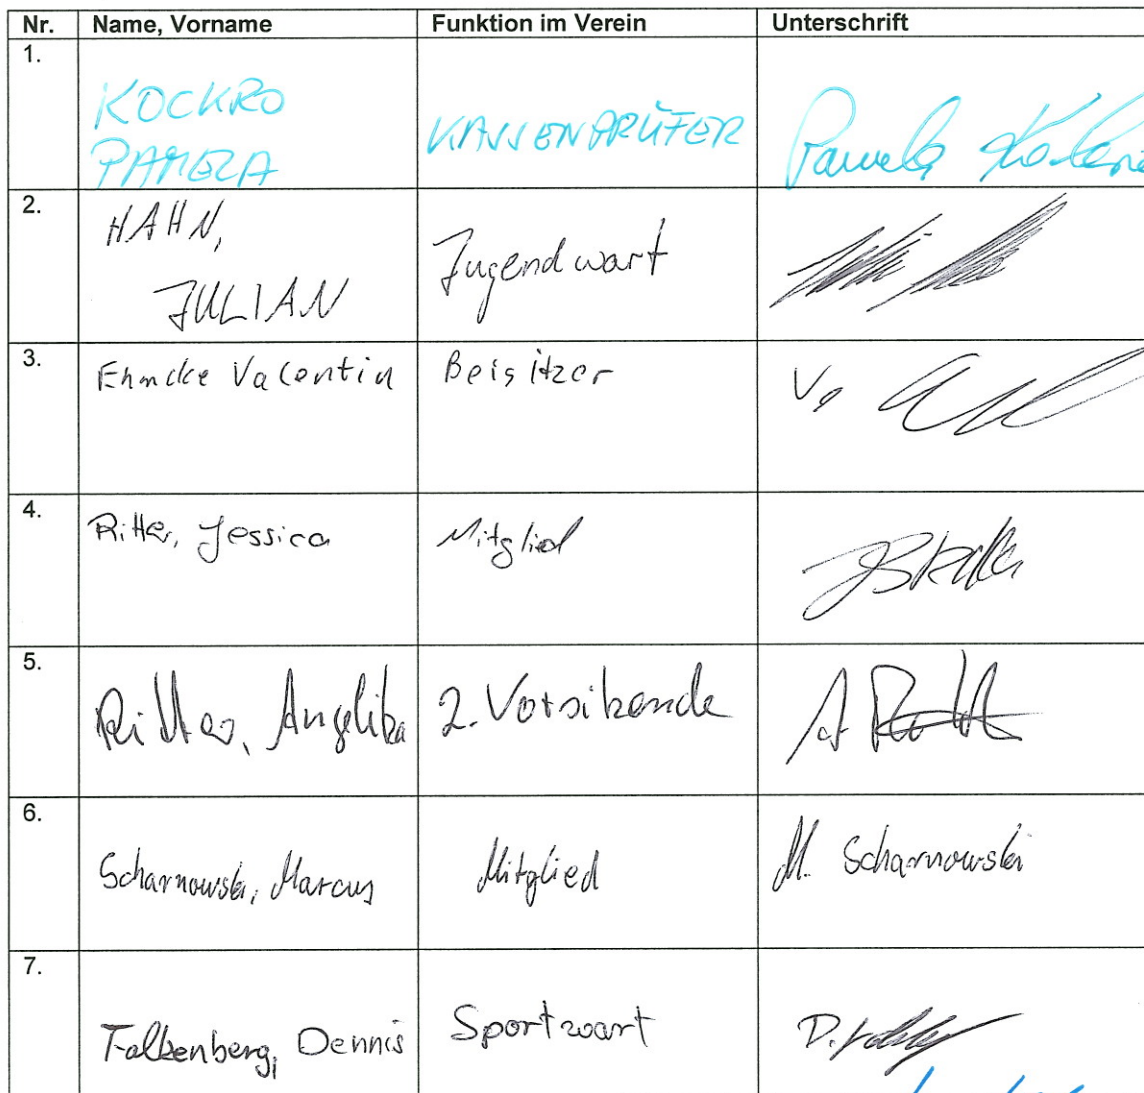 Nr. Name, Vorname Funktion im Verein Unterschrift
1.
KOCKRO
PAMELA KASSENPRÜFER Pamela
2.
HAHN,
JULIAN Jugendwart
3.
Ehmcke Valentin Beisitzer
4.
Ritter, Jessica Mitglied
5.
Ritter, Angelika 2. Vorsitzende
6.
Scharnowski, Marcus Mitglied M. Scharnowski
7.
Falkenberg, Dennis Sportwart